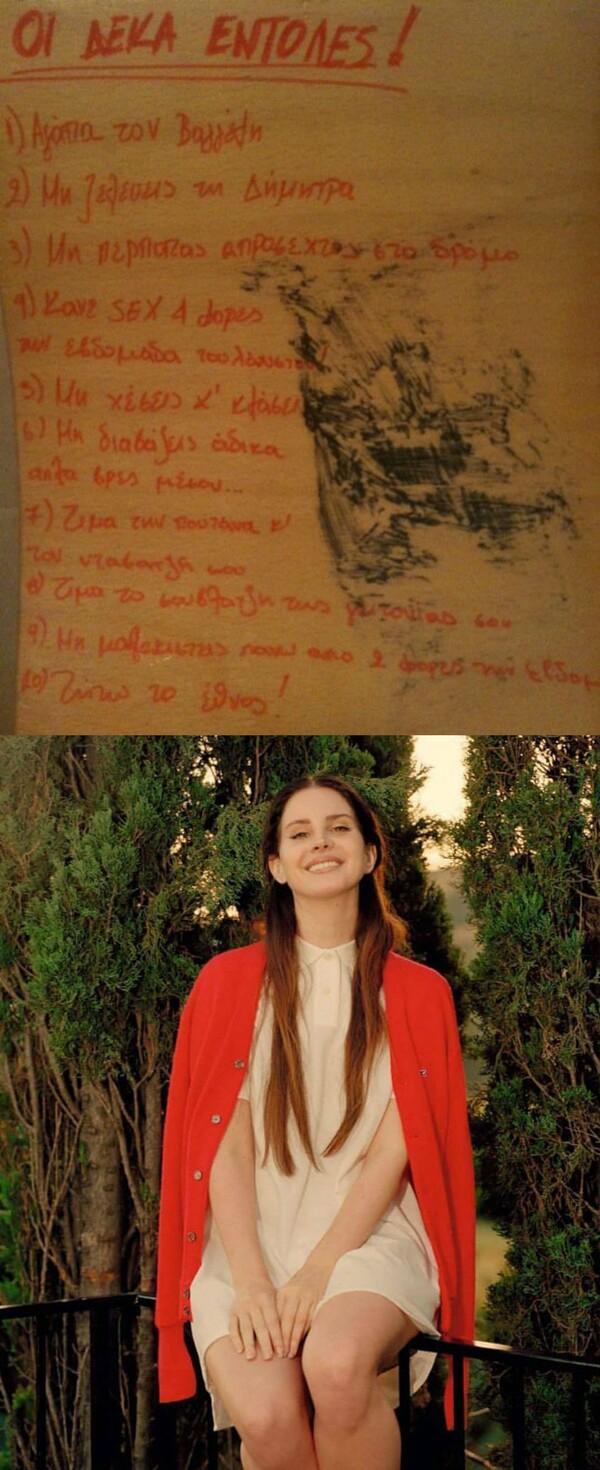 ΟΙ ΔΕΚΑ ΕΝΤΟΛΕΣ!
1) Αγάπα τον Βαγγέλη
2) Μη ζελευεις τη Δήμητρα
3) Μη περπατας απροσεχτος στο δρόμο
4) Κανε SEX 4 φορες
την εβδομαδα τουλάχιστον!
5) Μη χέσεις κ' κλάσεις
6) Μη διαβάζεις άδικα
απλα βρες μέσον...
7) Τιμα την πουτάνα κ'
τον νταβατζή σου
8) Τιμα το σουβλατζη της γειτονιας σου
9) Μη μαλακιστεις πανω απο 2 φορες την εβδομ
10) Ζητω το έθνος!